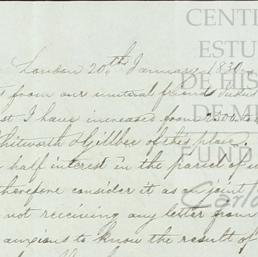 CENTR
ESTU
DE HIS
DE MÉ
FUND
Carlo
London 20th January 1830
from our mutual friend
I have increased from 2300 to
Whitworth & Gillbee of this place.
half interest in the parcel of
therefore consider it as a joint
not receiving any letter from
anxious to know the result of